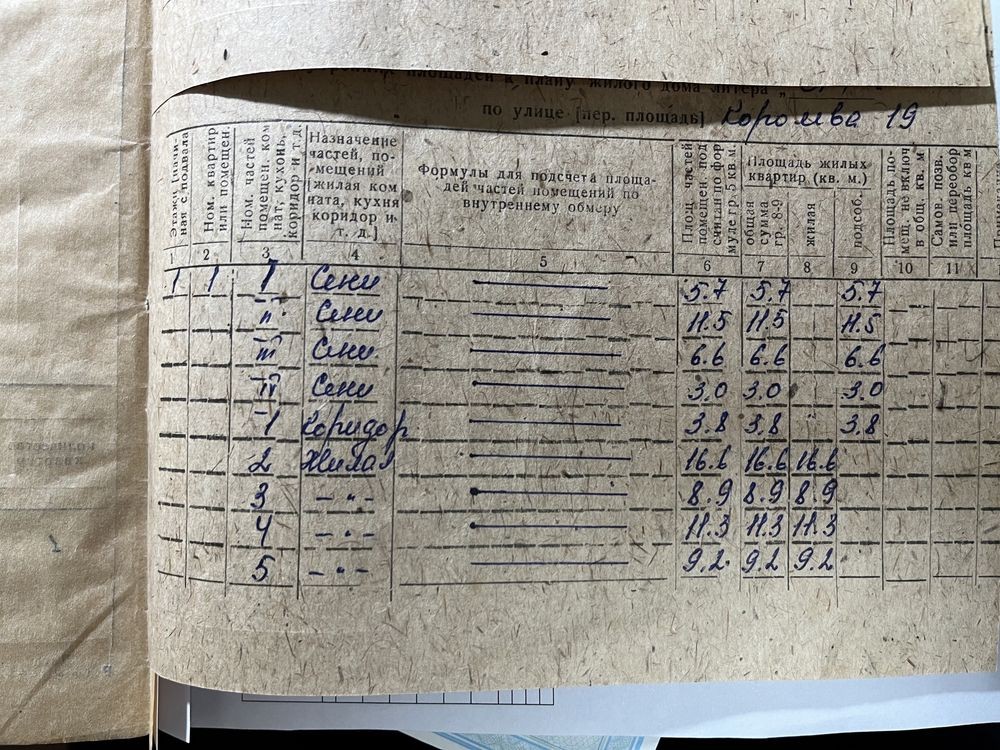 площадей к плану жилого дома литера „
по улице [пер. площадь] Королева 19
Этажи (начиная с подвала
Ном. квартир или помещен.
Ном. частей помещен. комнат, кухонь, коридор и т д.
Назначение частей, помещений [жилая комната, кухня коридор и т. д.]
Формулы для подсчета площадей частей помещений по внутреннему обмеру
Площ. частей помещен. подсчитан по формуле гр. 5 кв. м.
Площадь жилых квартир (кв. м.)
общая сумма гр. 8-9
жилая
подсоб.
Площадь помещ. не включ в общ. кв. м
Самов. позв. или переобор площадь кв м
1 2 3 4 5 6 7 8 9 10 11
1 1 I Сени 5.7 5.7 5.7
II Сени 11.5 11.5 11.5
III Сени 6.6 6.6 6.6
IV Сени 3.0 3.0 3.0
1 Коридор 3.8 3.8 3.8
2 Жилая 16.6 16.6 16.6
3 – " – 8.9 8.9 8.9
4 – " – 11.3 11.3 11.3
5 – " – 9.2 9.2 9.2